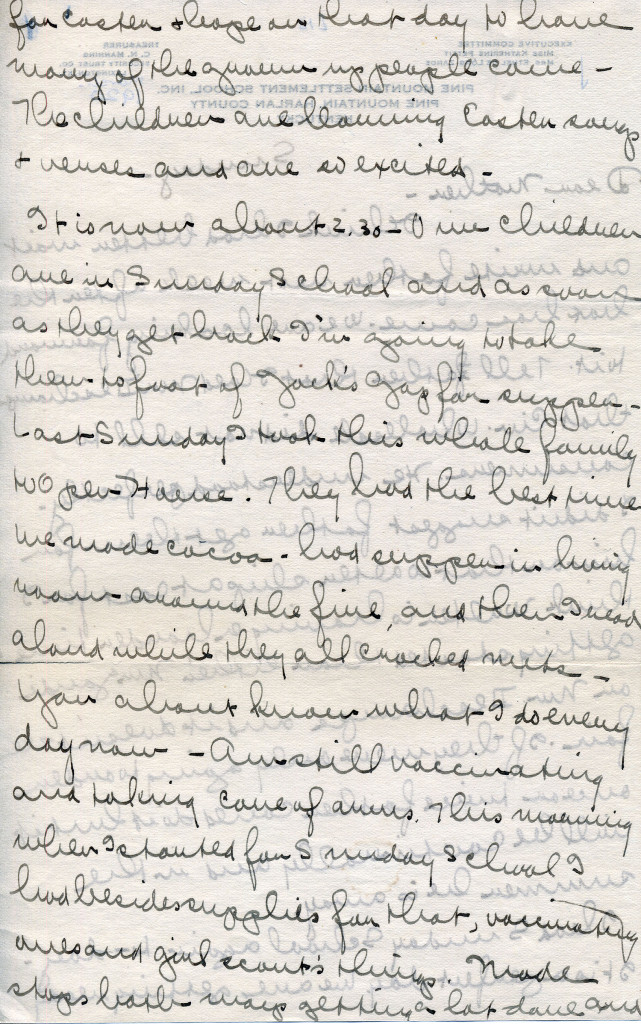 for Easter & hope on that day to have
many of the grown up people come –
The children are learning Easter songs
& verses and are so excited –
It is now about 2.30 – Our children
are in Sunday School and as soon
as they get back I'm going to take
them to foot of Jack's Gap for supper –
Last Sunday I took this whole family
to Open House. They had the best time
we made cocoa – had supper in living
room around the fire, and then I read
aloud while they all cracked nuts –
You about know what I do every
day now – Am still vaccinating
and taking care of arms. This morning
when I started for Sunday School I
had besides supplies for that, vaccinating
ones and girl scout's things. Made
stops both ways getting a lot done and